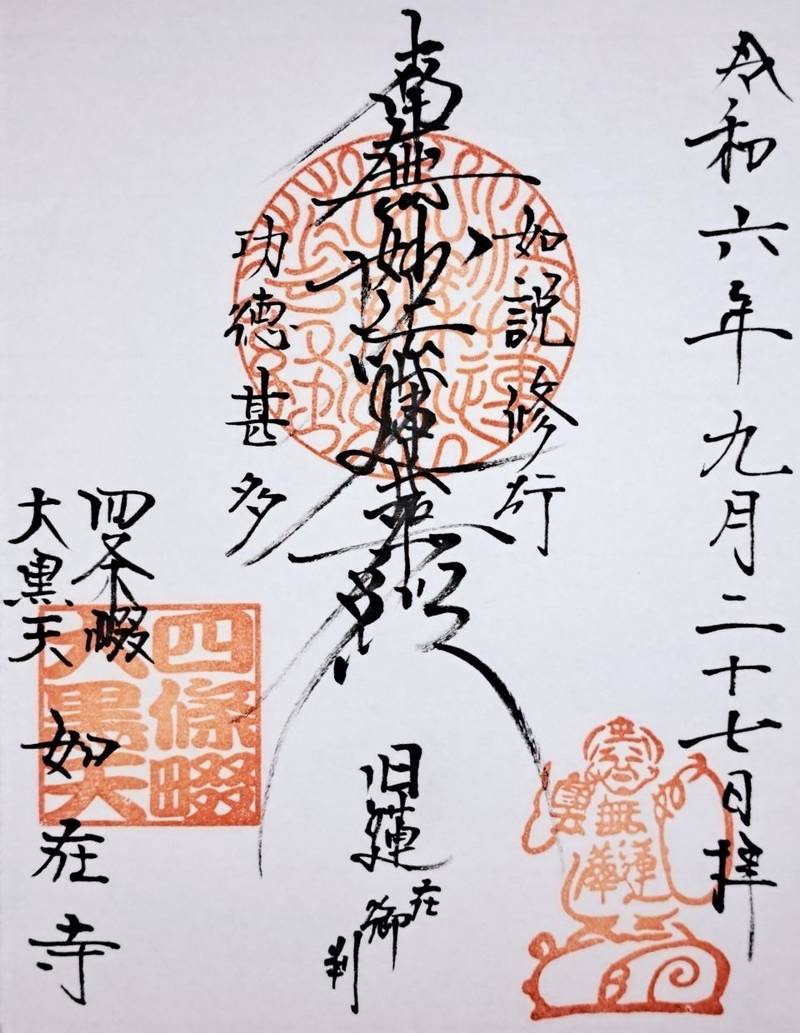 令和六年九月二十七日拝
如説修行
南無妙法蓮華経
功徳甚多
旧蓮在御判
四条畷
大黒天
如在寺
四條畷
大黒天